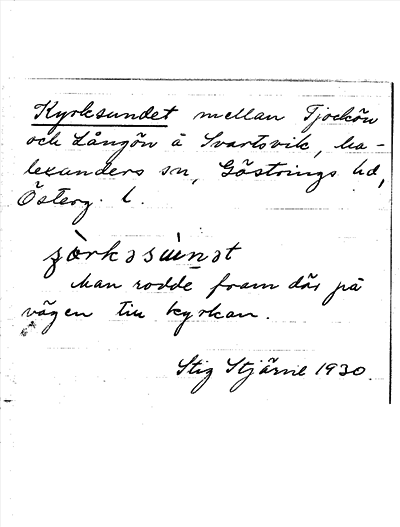 Kyrksundet mellan Tjockön
och Långön å Svartsvik, Ma-
lexanders sn, Göstrings hd,
Österg. l.
Man rodde fram där på
vägen till kyrkan.
Stig Stjärne 1930